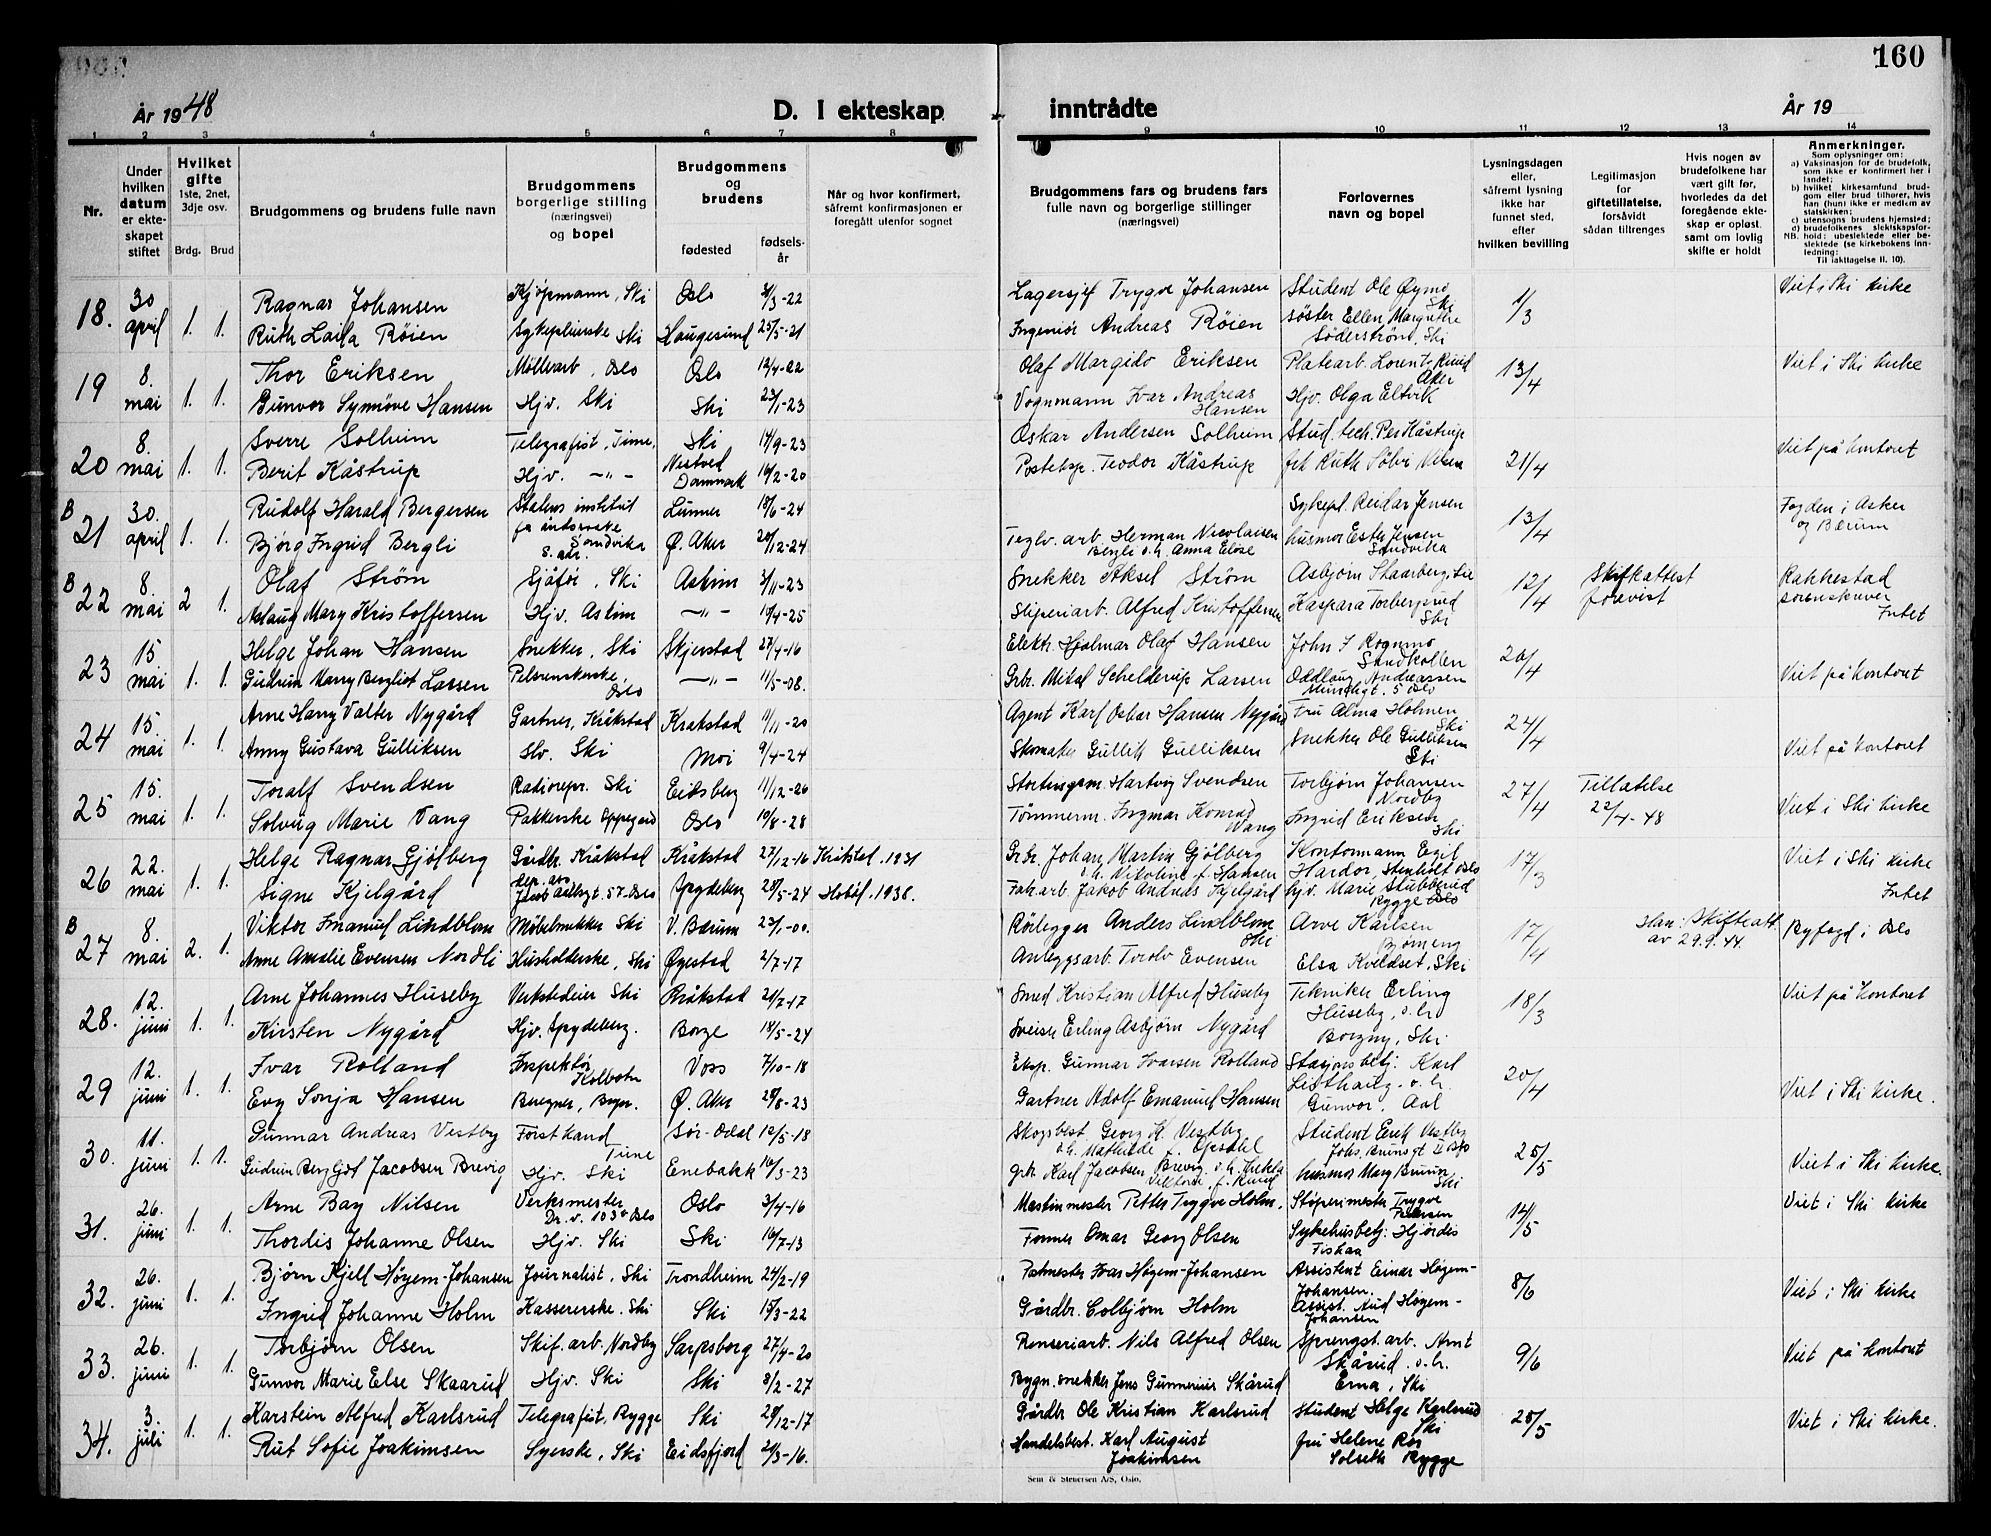 160
År 1948
D. I ekteskap inntrådte
År 19
1 2 3 4 5 6 7 8 9 10 11 12 13 14
Nr.
Under
hvilken
datum
er ekte-
skapet
stiftet
Hvilket
gifte
1ste, 2net,
3dje osv.
Brdg. Brud
Brudgommens og brudens fulle navn
Brudgommens
borgerlige stilling
(næringsvei)
og bopel
Brudgommens
og
brudens
fødested
fødsels-
år
Når og hvor konfirmert,
såfremt konfirmasjonen er
foregått utenfor sognet
Brudgommens fars og brudens fars
fulle navn og borgerlige stillinger
(næringsvei)
Forlovernes
navn og bopel
Lysningsdagen
eller,
såfremt lysning
ikke har
funnet sted,
efter
hvilken bevilling
Legitimasjon
for
giftetillatelse,
forsåvidt
sådan tiltrenges
Hvis nogen av
brudefolkene har
vært gift før,
hvorledes da det
foregående ekte-
skap er opløst.
samt om lovlig
skifte er holdt
Anmerkninger.
Som oplysninger om:
a) Vaksinasjon for de brudefolk,
som ikke er konfirmert her i
landet;
b) hvilket kirkesamfund brud-
gom eller brud tilhører, hvis
han (hun) ikke er medlem av
statskirken;
c) utensogns brudens hjemsted;
d) brudefolkenes slektskapsfor-
NB. hold: ubeslektede eller be-
slektede (se kirkebokens inn-
ledning:
Til iakttagelse II. 10).
18. 30 april 1. 1. Ragnar Johansen Kjøpmann, Ski Oslo 31/3-22 Lagersjef Trygve Johansen Student Ole Øymo Ski 1/3 Viet i Ski kirke
Ruth Laila Røien Sykepleierske Ski Haugesund 25/5-21 Ingeniør Andreas Røien søster Ellen Margrethe
Söderstrøm, Ski
19 8. mai 1. 1. Thor Eriksen Møllearb, Oslo Oslo 12/4-22 Olaf Margido Eriksen Platearb. Lorentz Ruud Aker 13/4 Viet i Ski kirke
Gunvor Synnøve Hansen Hjv. Ski Ski 23/1-23 Vognmann Ivar Andreas Hansen Hjv. Olga Eltvik
20 8. mai 1. 1. Sverre Solheim Telegrafist, Tune, Ski 14/9-23 Oskar Andersen Solheim Stud. tech. Per Kåstrup 21/4 Viet på kontoret
Berit Kåstrup Hjv. -"- Nestved Danmark 16/2-20 Posteksp. Teodor Kåstrup frk Ruth Solvi Nilsen
B 21 30. april 1. 1. Rudolf Harald Bergersen Statens institut Lunner 18/6-24 Sykepl. Reidar Jensen 13/4 Fogden i Asker og Bærum
Bjørg Ingrid Bergli for åndssvake Sandvika Ø. Aker 20/12-24 Teglv. arb. Herman Nicolaisen Bergli o.h. Anna Elise husmor Ester Jensen Sandvika
B 22 8. mai 2 1. Olaf Strøm Sjåfør, Ski Askim 3/11-23 Snekker Aksel Strøm Asbjørn Skaarberg, Lie 12/4 Skifteattest forevist Rakkestad sorenskriver
Aslaug Mary Kristoffersen Hjv. Askim -"- 10/4-25 Sliperiarb. Alfred Kristoffersen Kaspara Torbergsrud Ski Intet
23 15. mai 1. 1. Helge Johan Hansen Snekker, Ski Skjerstad 27/4-16 Elektr. Hjalmar Olaf Hansen John I Rognmo Sandkollen 26/4
Gudrun Marry Bergliot Larsen Pelssrerske, Oslo -"- 11/5-08. Grbr. Mikal Schelderup Larsen Oddlaug Andreassen Munchgt. 5 Oslo Viet på kontoret
24 15. mai 1. 1. Arne Harry Valter Nygård Gartner, Kråkstad Kråkstad 11/11-20 Agent Karl Oskar Hansen Nygård Fru Alma Holmen Ski 24/4
Anny Gustava Gulliksen Hv. Ski Moi 9/4-24 Skomaker Gullik Gulliksen Snekker Ole Gulliksen Ski Viet på kontoret
25 15. mai 1. 1. Toralf Svendsen Radiorepr. Ski Eidsberg 11/12-26 Stortingsm. Hartvig Svendsen Torbjørn Johansen Nordby 27/4 Tillatelse 22/4-48
Solveig Marie Vang Pakkerske Oppegård Oslo 10/8-28 Tømmerm. Ingmar Konrad Wang Ingrid Eriksen Ski Viet i Ski kirke
26 22. mai 1. 1. Helge Ragnar Gjølberg Gårdbr. Kråkstad Kråkstad 27/12-16 Kråkstad. 1931 Gr.br. Johan Martin Gjølberg o.h. Nikoline f. Hansen Kontormann Egil Hardor, Stenholt Oslo 17/3 Viet i Ski kirke
Signe Kjelgård Jacob Aallsgt. 57. Oslo Spydeberg 28/5-24 Hobøl. 1938. Fabr.arb. Jakob Andreas Kjelgård hjv. Marie Stubberud Rygge Intet
B 27 8. mai 2. 1. Viktor Imanuel Lindblom Møbelsnekker Ski V. Bærum 23/1-00. Rørlegger Anders Lindblom Ski Arne Karlsen 17/4 Han: Skifteatt. av 29.9.44. Byfogd i Oslo
Anne Amalie Evensen Nordli Husholderske, Ski Øyestad 2/7-17 Anleggsarb. Torolv Evensen Elsa Kveldset, Ski
28. 12. juni 1. 1. Arne Johannes Huseby Verkstedeier Ski Kråkstad 21/7-17 Smed Kristian Alfred Huseby Tekniker Erling 18/3 Viet på kontoret
Kirsten Nygård Hjv. Spydeberg. Borge 18/5-24 Sveiser Erling Asbjørn Nygård Huseby, o.h. Borgny, Ski
29 12. juni 1. 1. Ivar Rolland Inspektør Kolbotn Voss 7/10-18 Eksp. Gunnar Ivarsen Rolland Stasjonsbetj. Karl 20/4
Evy Sonja Hansen Beregner, Ø. Aker 28/8-23 Gartner Adolf Emanuel Hansen Listhaug. o.h. Gunvor. Aal Viet i Ski kirke.
30. 11. juni 1. 1. Gunnar Andreas Vestby Forstkand Tune Sør-Odal 12/5-18 Skogsbest. Georg K. Vestby o.h. Mathilde f. Opsahl Student Erik Vestby Johs. Brunsgt II Oslo 25/5
Gudrun Bergljot Jacobsen Brevig Hjv. Ski Enebakk 16/3-23 Grbr. Karl Jacobsen Brevig o.h. Hekla Viktoria f. Ruud husmor Mary Brunon Ski Viet i Ski kirke.
31. 26. juni 1. 1. Arne Bay Nilsen Verksmester Dr. v. 103 Oslo Oslo 3/4-16 Maskinmester Petter Trygve Holm. Støperimester Trygve Pedersen 14/5 Viet i Ski kirke
Thordis Johanne Olsen Hjv. Ski Ski 16/7-13 Former Omar Georg Olsen Sykehusbetj: Hjørdis Fiskaa
32. 26. juni 1. 1. Bjørn Kjell Høyem-Johansen Journalist, Ski Trondheim 24/2-19 Pakmester Ivar Høyem-Johansen Assistent Einar Høyem-Johansen. 8/6
Ingrid Johanne Holm Kassererske. Ski Ski 15/3-22 Gårdbr. Colbjørn Holm Assist. Aud Høyem-Johansen Viet i Ski kirke
33. 26. juni 1. 1. Torbjørn Olsen Skif. arb. Nordby Sarpsborg 27/4-20 Renseriarb. Nils Alfred Olsen Sprengst. arb. Arnt 9/6
Gunvor Marie Else Skaarud Hjv. Ski Ski 8/2-27 Bygn. snekker Jens Gunnerius Skårud Skårud. o.h. Erna, Ski Viet på kontoret
34. 3. juli 1. 1. Karstein Alfred Karlsrud Telegrafist, Rygge Ski 28/12-17 Gårdbr Ole Kristian Karlsrud Student Helge Karlsrud Ski 25/5 Viet i Ski kirke.
Rut Sofie Joakimsen Syerske, Ski Eidsfjord 20/3-16. Handelsbest. Karl August Joakimsen fru Helene Ros Solseth Rygge
Sem & Stenersen A/S, Oslo.